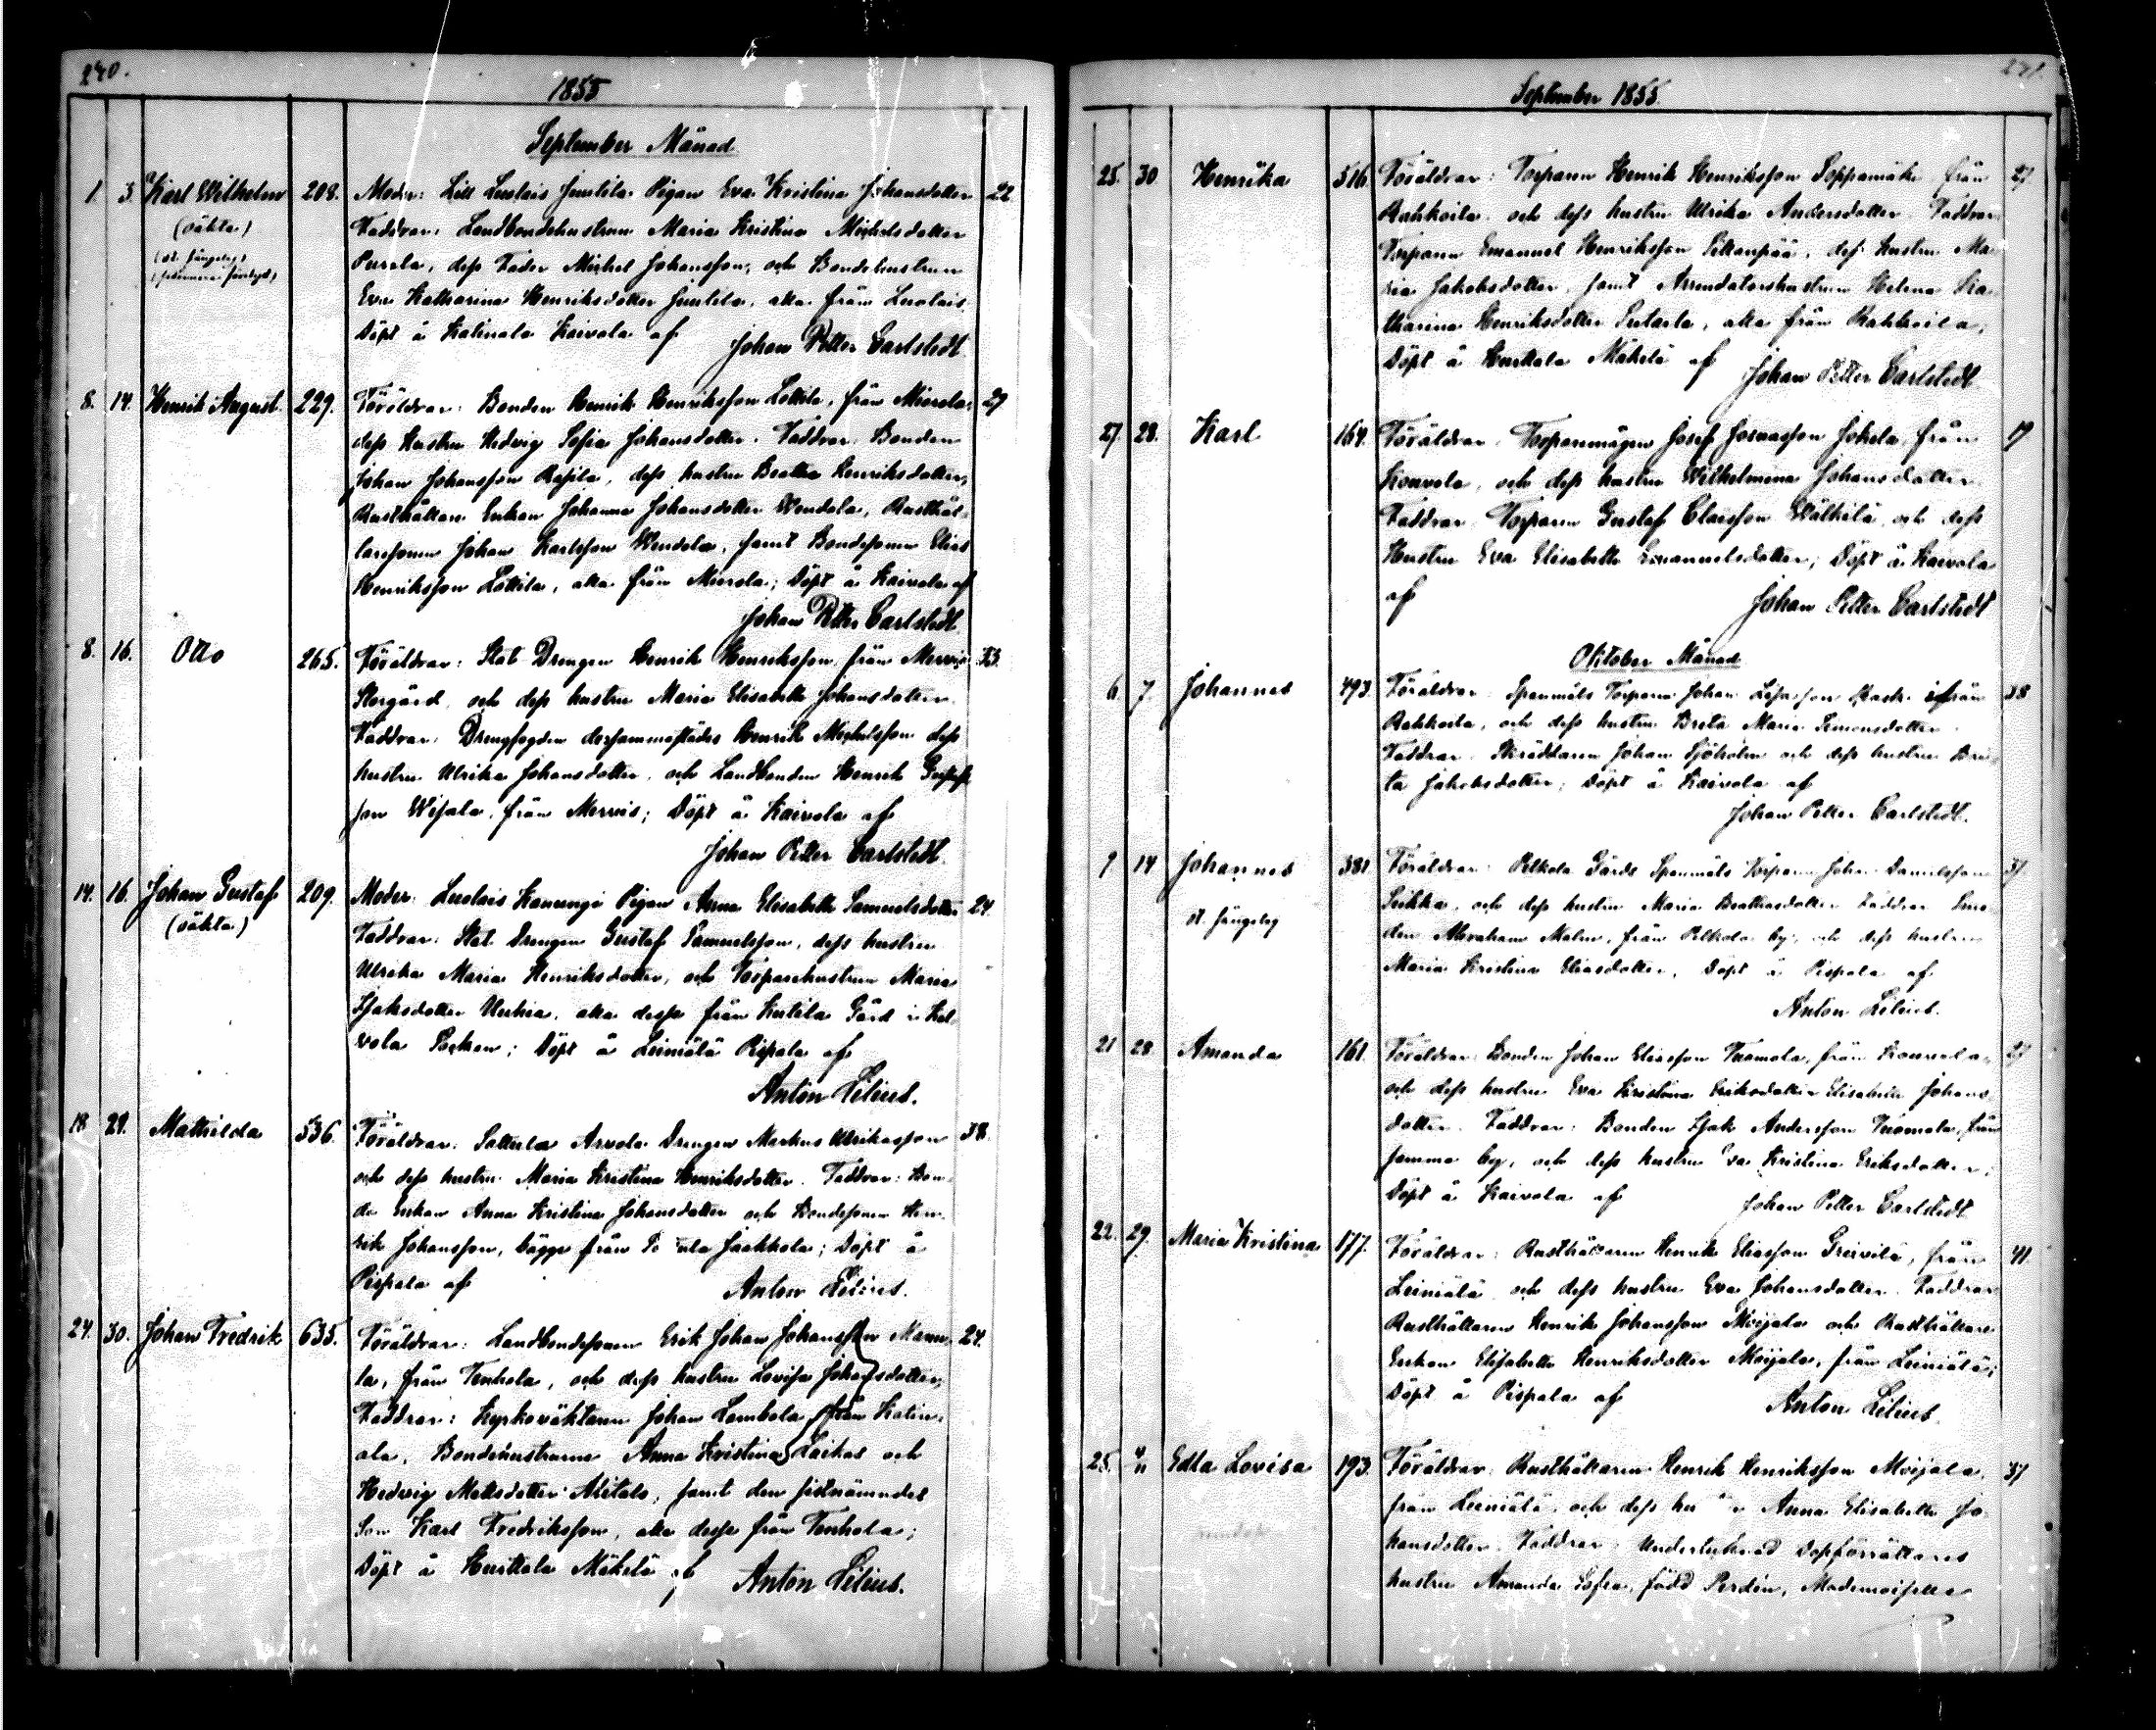 240.
1855
September Månad
1. 3. Karl Wilhelm 208. Moder: Lill Luolais Juutila Pigan Eva Kristina Johansdotter 22
(oäkta) Faddrar: Landbondehustrun Maria Kristina Michelsdotter
Purola, dess Fader Michel Johansson, och Bondehustrun
Eva Katharina Henriksdotter Juutila, alla från Luolais.
Döpt å Katinala Kaivola af Johan Petter Carlstedt
8. 14. Henrik August. 229. Föräldrar: Bonden Henrik Henriksson Lottila, från Mierola, 29
dess hustru Hedvig Sofia Johansdotter. Faddrar: Bonden
Johan Johansson Rapila, dess hustru Beatha Henriksdotter,
Rusthållare Enkan Johanna Johansdotter Wendola, Rusthål-
laresonen Johan Karlsson Wendola, samt Bondesonen Elias
Henriksson Lottila, alla från Mierola; Döpt å Kaivola af
Johan Petter Carlstedt
8. 16. Otto 265. Föräldrar: Stat Drengen Henrik Henriksson från Mervis 33.
Storgård, och dess hustru Maria Elisabeth Johansdotter.
Faddrar: Drengfogden dersammastädes Henrik Michelsson dess
hustru Ulrika Johansdotter, och Landbonden Henrik Gustafs
son Wisala, från Mervis; Döpt å Kaivola af
Johan Petter Carlstedt
14. 16. Johan Gustaf 209. Moder: Luolais Kanungi Pigan Anna Elisabeth Samuelsdotter 24.
(oäkta) Faddrar: Stat Drengen Gustaf Samuelsson, dess hustru
Ulrika Maria Henriksdotter, och Torparehustrun Maria
Isaksdotter Uschia, alla desse från Kutila Gård i Kal-
vola Socken; Döpt å Leiniälä Pispala af
Anton Lilius.
18 29. Mathilda 536. Föräldrar: Sattula Arvola Drengen Markus Ulrikasson 38.
och dess hustru Maria Kristina Henriksdotter. Faddrar: Bon-
de Enkan Anna Kristina Johansdotter och Bondesonen Hen-
rik Johansson, bägge från Jaakkola; Döpt å
Pispala af Anton Lilius.
24. 30. Johan Fredrik 635. Föräldrar: Landbondesonen Erik Johan Johansson Mann- 24.
la, från Tenhola, och dess hustru Lovisa Johansdotter;
Faddrar: Kyrkoväktaren Johan Lambola från Katin-
ala, Bondehustrurna Anna Kristina Laikas och
Hedvig Mattsdotter Alitalo, samt den sistnämndes
Son Karl Fredriksson, alla desse från Tenhola;
Döpt å Hurttala Mäkelä af Anton Lilius.
241.
September 1855.
25. 30 Henrika 516. Föräldrar: Torparen Henrik Henriksson Soppamäki från 27.
Rahkoila och dess hustru Ulrika Andersdotter Faddrar
Torparen Emanuel Henriksson Peltanpää, dess hustru Ma-
ria Jakobsdotter, samt Arrendatorshustrun Helena Ka-
tharina Henriksdotter, alla från Rahkoila,
Döpt å Hurttala Mäkelä af Johan Petter Carlstedt
27. 28. Karl 164. Föräldrar: Torparemågen Josef Josuasson Jokela från 19
Kouvola, och dess hustru Wilhelmina Johansdotter.
Faddrar Torparen Gustaf Claesson Wälkilä och dess
Hustru Eva Elisabeth Emanuelsdotter; Döpt å Kaivola
af Johan Petter Carlstedt
Oktober Månad
6. 7. Johannes 493. Föräldrar: Spanmåls Torparen Johan från 38
Rahkoila, och dess hustru Brita Maria Simonsdotter.
Faddrar: Skräddaren Johan Sjöholm och dess hustru Bri-
ta Jakobsdotter; Döpt å Kaivola af
Johan Petter Carlstedt.
9 14 Johannes 381 Föräldrar: Pelkola Gårds Spanmåls Torparen Johan Danielsson 31
Sikka, och dess hustru Maria Beathasdotter Faddrar
den Abraham Malm, från Pelkola by, och dess hustru
Maria Kristina Eliasdotter, Döpt å Pispala af
Anton Lilius.
21 28. Amanda 161. Föräldrar: Bonden Johan Eliasson Tuomola, från Kouvola, 27
och dess hustru Eva Kristina Eriksdotter Elisabeth Johans
dotter. Faddrar: Bonden Isak Andersson Tuomola, från
samma by, och dess hustru Eva Kristina Eriksdotter;
Döpt å Kaivola af Johan Petter Carlstedt
22. 29. Maria Kristina 177. Föräldrar: Rusthållaren Henrik Eliasson Greivilä, från 41.
Leiniälä och dess hustru Eva Johansdotter. Faddrar
Rusthållaren Henrik Johansson Moijala och Rusthållare
Enkan Elisabeth Henriksdotter Moijala, från Leiniälä;
Döpt å Pispala af Anton Lilius.
25. 4/11 Edla Lovisa 193. Föräldrar: Rusthållaren Henrik Henriksson Moijala, 37
från Leiniälä, och dess hustru Anna Elisabeth Jo-
hansdotter. Faddrar: Undertecknad Dopförrättares
hustru Amanda Sofia, född Perdén, Mademoiselle